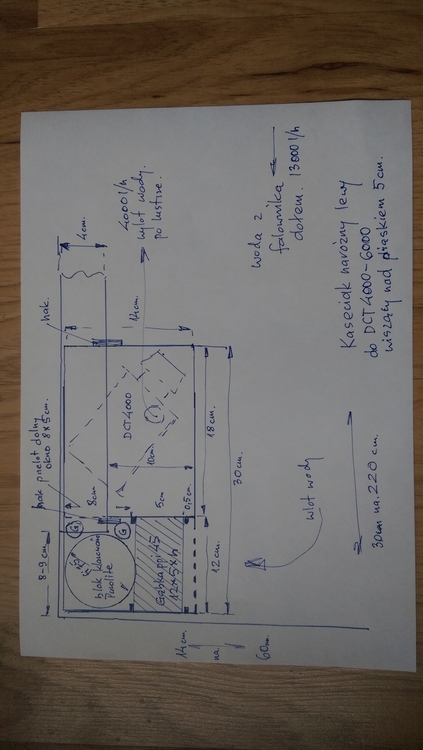 Kaseciak narożny lewy
do DCT4000-6000
wiszący nad piaskiem 5 cm.
woda z
falownika
dołem. 13000 l/h
4000 l/h
wylot wody.
po lustrze.
4cm.
hak.
14cm.
hak
przelot dolny
okno 8x5cm.
8cm
DCT4000
10cm
5cm
0,5cm.
18cm.
30cm.
12cm.
8-9cm
G
G
blok
Gąbka ppi 45
12x5xh
wlot wody
30cm na 220 cm.
14cm
na.
60cm.